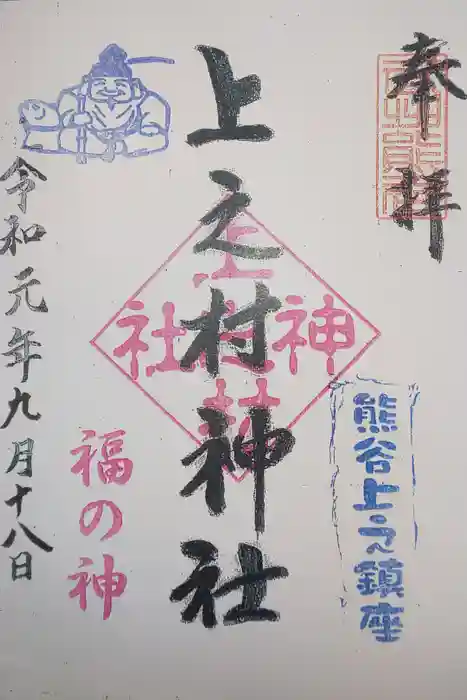 奉拝
熊谷上之鎮座
上之村神社
神社
福の神
令和元年九月十八日